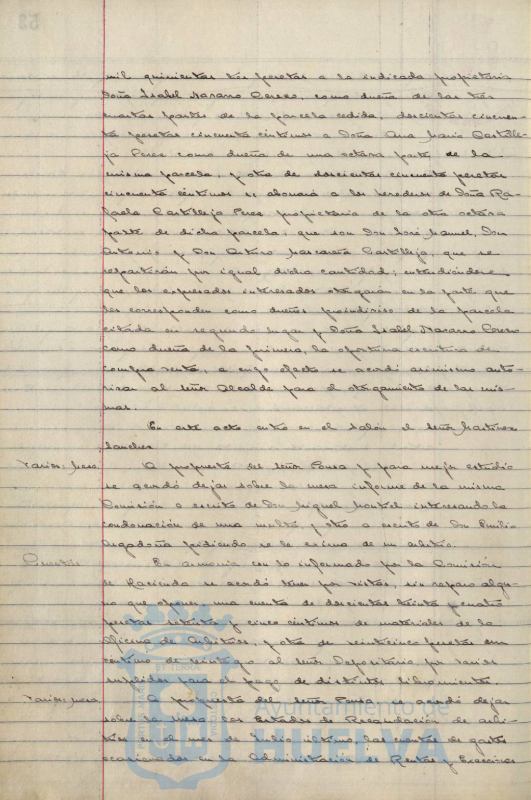 mil quinientas tres pesetas a la indicada propietaria
Doña Isabel Navarro Cerezo, como dueña de las tres
cuartas partes de la parcela cedida, doscientas cincuen-
ta pesetas cincuenta céntimos a Doña Ana María Castille-
ja Perez como dueña de una octava parte de la
misma parcela, y otra de doscientas cincuenta pesetas
cincuenta céntimos se abonará a los herederos de Doña Ra-
faela Castilleja Perez propietaria de la otra octava
parte de dicha parcela, que son Don José Manuel, Don
Antonio y Don Arturo Castilleja, que se
repartirán por igual dicha cantidad; entendiéndose
que los expresados interesados otorgarán en la parte que
les corresponden como dueños proindiviso de la parcela
citada en segundo lugar y Doña Isabel Navarro Cerezo
como dueña de la primera, la oportuna escritura de
compra venta, a cuyo efecto se acordó asimismo auto-
rizar al señor Alcalde para el otorgamiento de las mis-
mas.
En este acto entra en el salón el señor Martinez
Sanchez
Varios: mesa. A propuesta del señor Ponce y para mejor estudio
se acordó dejar sobre la mesa informe de la misma
Comisión a escrito de Don Miguel Montiel interesando la
condonación de una multa y otro a escrito de Don Emilio
pidiendo se le exima de un arbitrio.
Cuentas En armonía con lo informado por la Comisión
de Hacienda se acordó tener por vistas, sin reparo algu-
no que oponer, una cuenta de doscientas treinta y cuatro
pesetas setenta y cinco céntimos de materiales de la
Oficina de Arbitrios, y otra de veinticinco pesetas un
centimo de reintegro al señor Depositario por varios
suplidos para el pago de distintos libramientos.
Varios: mesa. A propuesta del señor Ponce se acordó dejar
sobre la mesa los Estados de Recaudación de arbi-
trios en el mes de Julio último, las cuentas de gastos
ocasionados en la Administración de Rentas y Exacciones
Ayuntamiento de
HUELVA